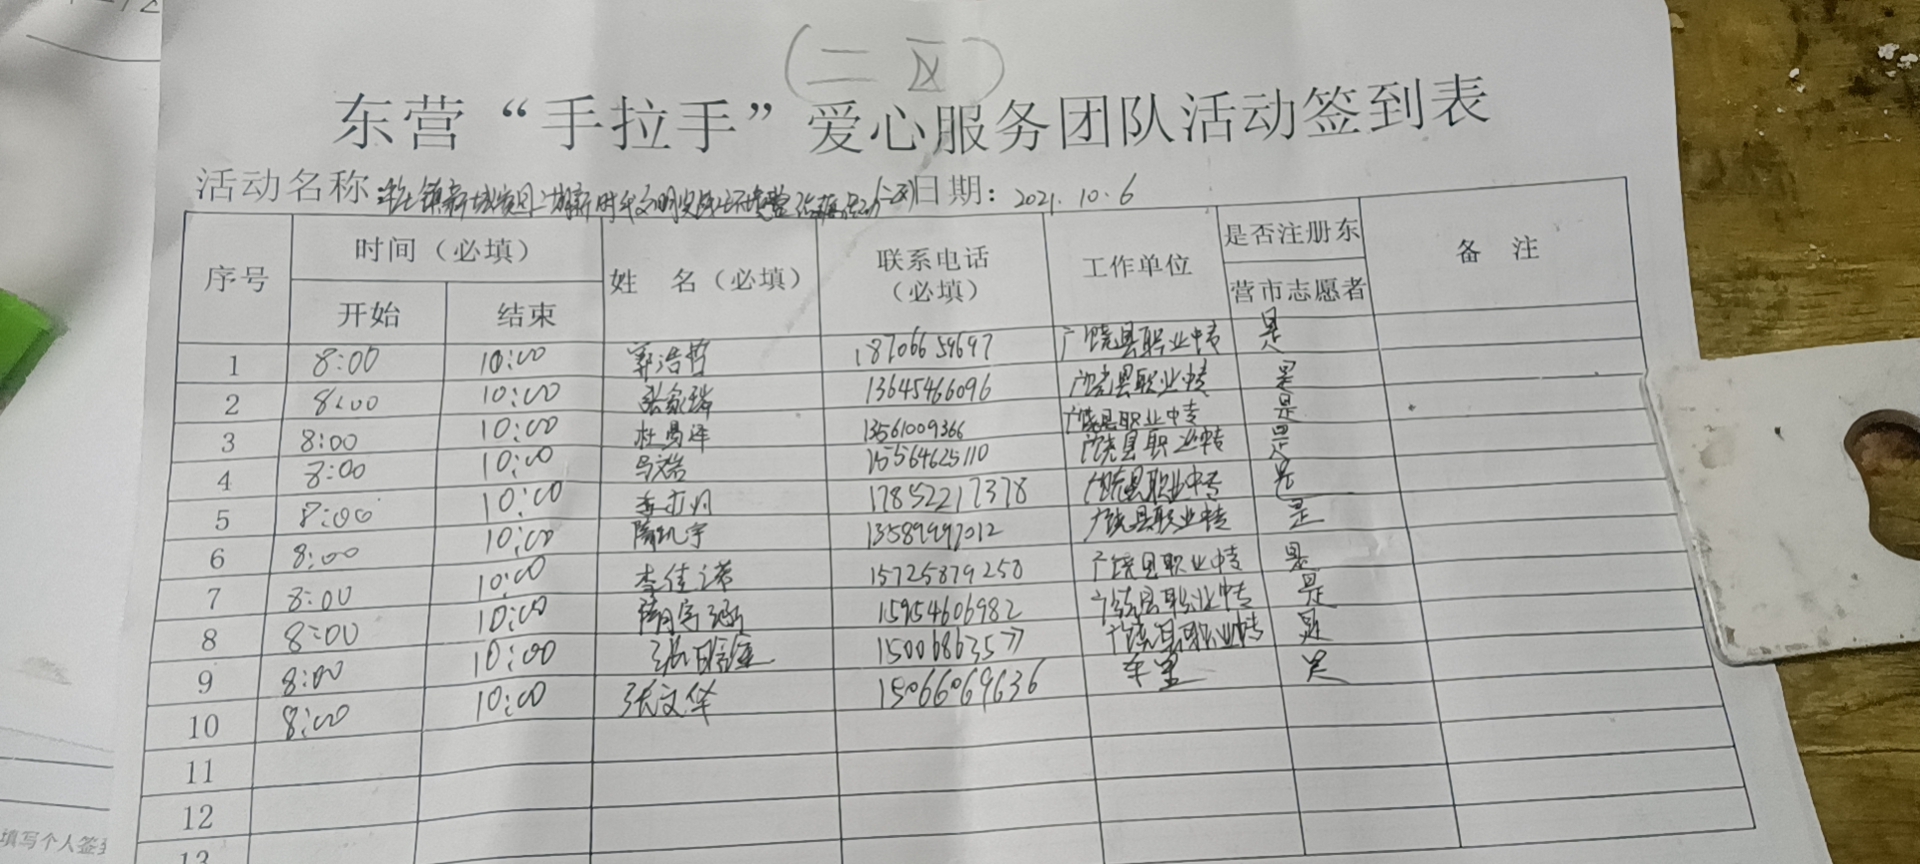 （二区）
东营“手拉手”爱心服务团队活动签到表
活动名称: 日期: 2021.10.6
序号 时间（必填） 姓 名（必填） 联系电话（必填） 工作单位 是否注册东营市志愿者 备 注
开始 结束
1 8:00 10:00 郭浩哲 18706659697 广饶县职业中专 是
2 8:00 10:00 张家瑞 13645466096 广饶县职业中专 是
3 8:00 10:00 13561009366 广饶县职业中专 是
4 8:00 10:00 15564625110 广饶县职业中专 是
5 8:00 10:00 17852217378 广饶县职业中专 是
6 8:00 10:00 隋凯宇 13589997012 广饶县职业中专 是
7 8:00 10:00 李佳诺 15725879258 广饶县职业中专 是
8 8:00 10:00 隋宇涵 15954606982 广饶县职业中专 是
9 8:00 10:00 广饶县职业中专 是
10 8:00 10:00 张文华 15066069636 是
11
12
13
填写个人签到